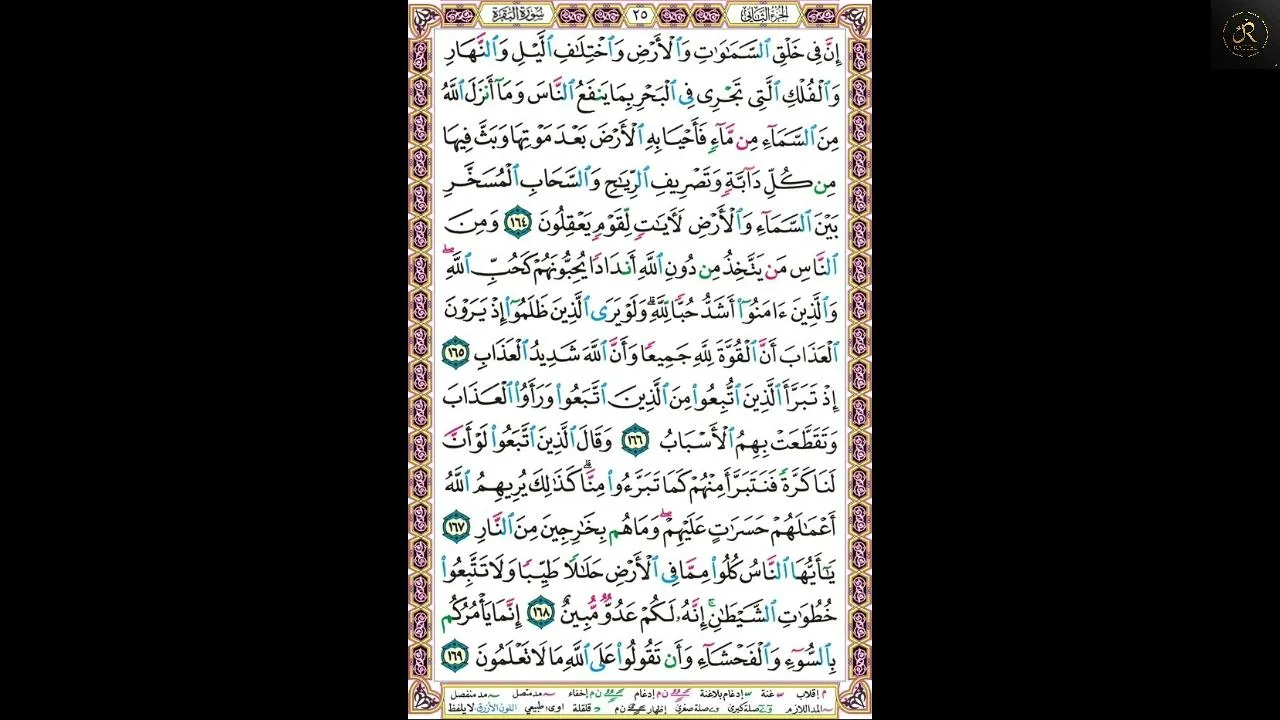 الجزء الثاني
٢٥
سورة البقرة
إِنَّ فِي خَلْقِ ٱلسَّمَٰوَٰتِ وَٱلْأَرْضِ وَٱخْتِلَٰفِ ٱلَّيْلِ وَٱلنَّهَارِ
وَٱلْفُلْكِ ٱلَّتِي تَجْرِي فِي ٱلْبَحْرِ بِمَا يَنفَعُ ٱلنَّاسَ وَمَآ أَنزَلَ ٱللَّهُ
مِنَ ٱلسَّمَآءِ مِن مَّآءٍ فَأَحْيَا بِهِ ٱلْأَرْضَ بَعْدَ مَوْتِهَا وَبَثَّ فِيهَا
مِن كُلِّ دَآبَّةٍ وَتَصْرِيفِ ٱلرِّيَٰحِ وَٱلسَّحَابِ ٱلْمُسَخَّرِ
بَيْنَ ٱلسَّمَآءِ وَٱلْأَرْضِ لَأٓيَٰتٍ لِّقَوْمٍ يَعْقِلُونَ ١٦٤ وَمِنَ
ٱلنَّاسِ مَن يَتَّخِذُ مِن دُونِ ٱللَّهِ أَندَادًا يُحِبُّونَهُمْ كَحُبِّ ٱللَّهِۖ
وَٱلَّذِينَ ءَامَنُوٓا۟ أَشَدُّ حُبًّا لِّلَّهِۗ وَلَوْ يَرَى ٱلَّذِينَ ظَلَمُوٓا۟ إِذْ يَرَوْنَ
ٱلْعَذَابَ أَنَّ ٱلْقُوَّةَ لِلَّهِ جَمِيعًا وَأَنَّ ٱللَّهَ شَدِيدُ ٱلْعَذَابِ ١٦٥
إِذْ تَبَرَّأَ ٱلَّذِينَ ٱتُّبِعُوا۟ مِنَ ٱلَّذِينَ ٱتَّبَعُوا۟ وَرَأَوُا۟ ٱلْعَذَابَ
وَتَقَطَّعَتْ بِهِمُ ٱلْأَسْبَابُ ١٦٦ وَقَالَ ٱلَّذِينَ ٱتَّبَعُوا۟ لَوْ أَنَّ
لَنَا كَرَّةً فَنَتَبَرَّأَ مِنْهُمْ كَمَا تَبَرَّءُوا۟ مِنَّاۗ كَذَٰلِكَ يُرِيهِمُ ٱللَّهُ
أَعْمَٰلَهُمْ حَسَرَٰتٍ عَلَيْهِمْۖ وَمَا هُم بِخَٰرِجِينَ مِنَ ٱلنَّارِ ١٦٧
يَٰٓأَيُّهَا ٱلنَّاسُ كُلُوا۟ مِمَّا فِي ٱلْأَرْضِ حَلَٰلًا طَيِّبًا وَلَا تَتَّبِعُوا۟
خُطُوَٰتِ ٱلشَّيْطَٰنِۚ إِنَّهُۥ لَكُمْ عَدُوٌّ مُّبِينٌ ١٦٨ إِنَّمَا يَأْمُرُكُم
بِٱلسُّوٓءِ وَٱلْفَحْشَآءِ وَأَن تَقُولُوا۟ عَلَى ٱللَّهِ مَا لَا تَعْلَمُونَ ١٦٩
م إقلاب غنة إدغام بلاغنة ن م إدغام ن م إخفاء مد متصل مد منفصل
المد اللازم صلة كبرى صلة صغرى إظهار ن م قلقلة اوى: طبيعي اللون الأزرق لا يلفظ